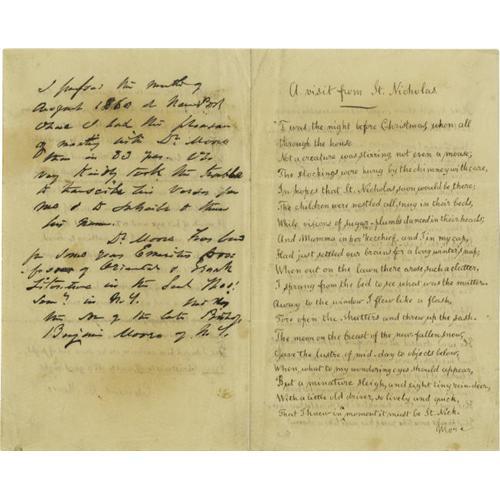 I passed the month of
August 1860 at New Port
where I had the pleasure
of meeting with Dr. Moore
then in 83 year. Who
very kindly took the trouble
to transcribe his verses for
me & to subscribe to them
his name.
Dr. Moore has been
for some years Emeritus Pro-
fessor of Oriental & Greek
Literature in the
in N.Y.
the son of the late Bishop
Benjamin Moore of N.Y.
A visit from St. Nicholas
'Twas the night before Christmas, when all
through the house
Not a creature was stirring not even a mouse;
The stockings were hung by the chimney with care,
In hopes that St. Nicholas soon would be there;
The children were nestled all snug in their beds,
While visions of sugar-plumbs danced in their heads;
And Mamma in her 'kerchief, and I in my cap,
Had just settled our brains for a long winter's nap;
When out on the lawn there arose such a clatter,
I sprang from the bed to see what was the matter.
Away to the window I flew like a flash,
Tore open the shutters and threw up the sash.
The moon on the breast of the new-fallen snow,
Gave the lustre of mid-day to objects below,
When, what to my wondering eyes should appear,
But a minature sleigh, and eight tiny rein-deer,
With a little old driver, so lively and quick,
That I knew in moment it must be St. Nick.
More